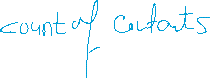 count of contants